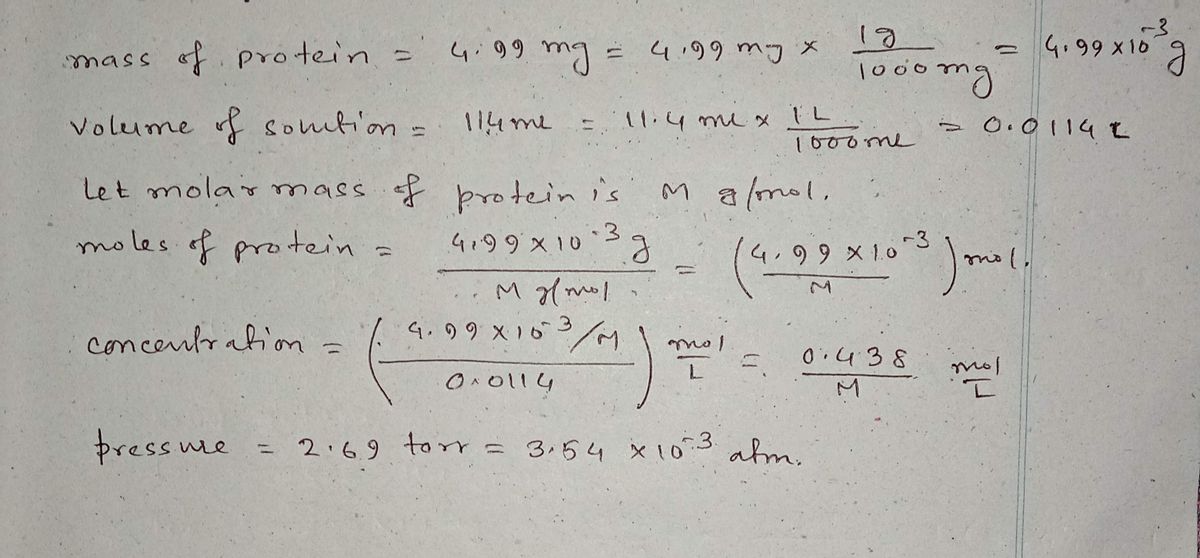 mass of protein = 4.99 mg = 4.99 mg × 1g / 1000 mg = 4.99 × 10⁻³ g
Volume of solution = 114 ml = 11.4 ml × 1 L / 1000 ml = 0.0114 L
Let molar mass of protein is M g/mol.
moles of protein = 4.99 × 10⁻³ g / M g/mol = (4.99 × 10⁻³ / M) mol.
concentration = (4.99 × 10⁻³/M / 0.0114) mol/L = 0.438 / M mol/L
pressure = 2.69 torr = 3.54 × 10⁻³ atm.